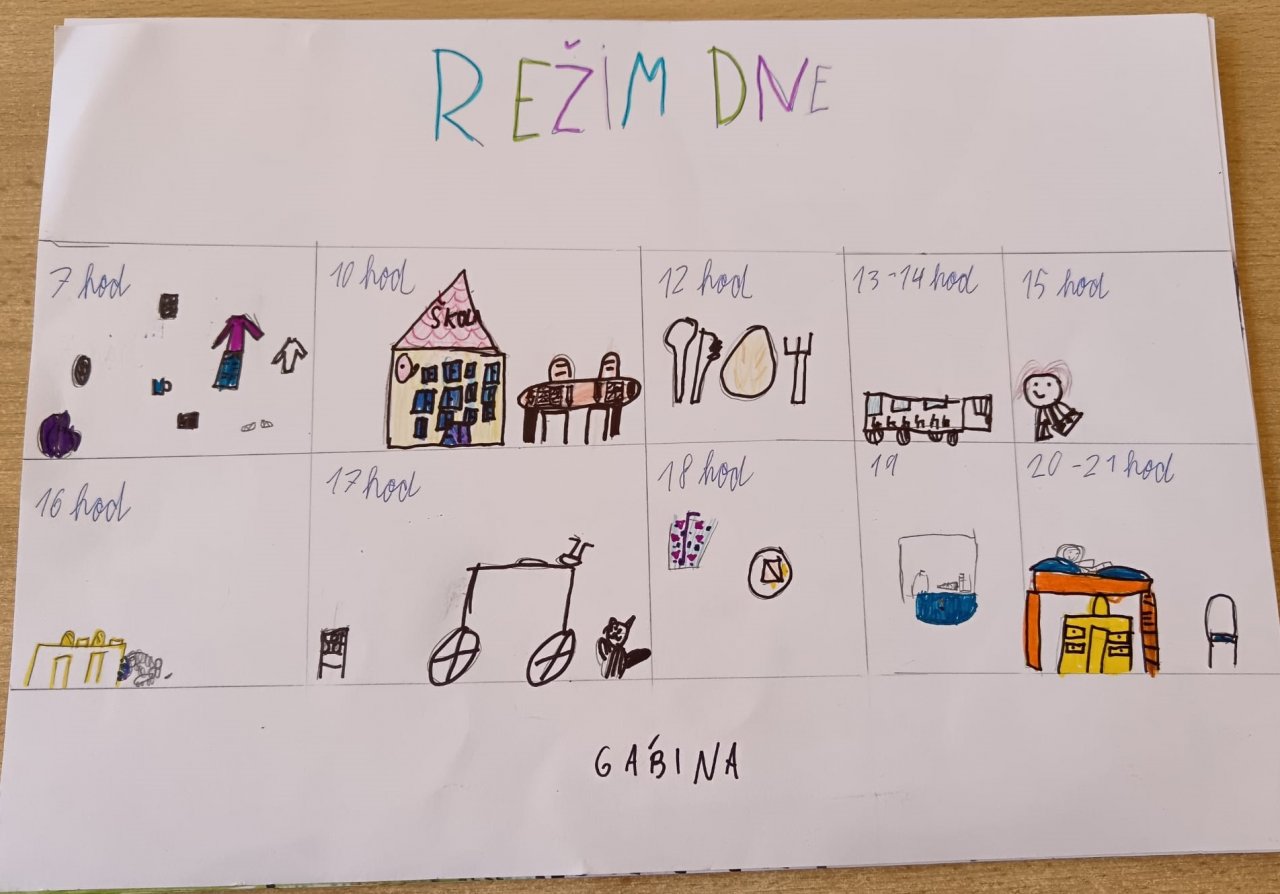 REŽIM DNE
7 hod
10 hod
12 hod
13-14 hod
15 hod
ŠKOLA
16 hod
17 hod
18 hod
19
20-21 hod
GÁBINA